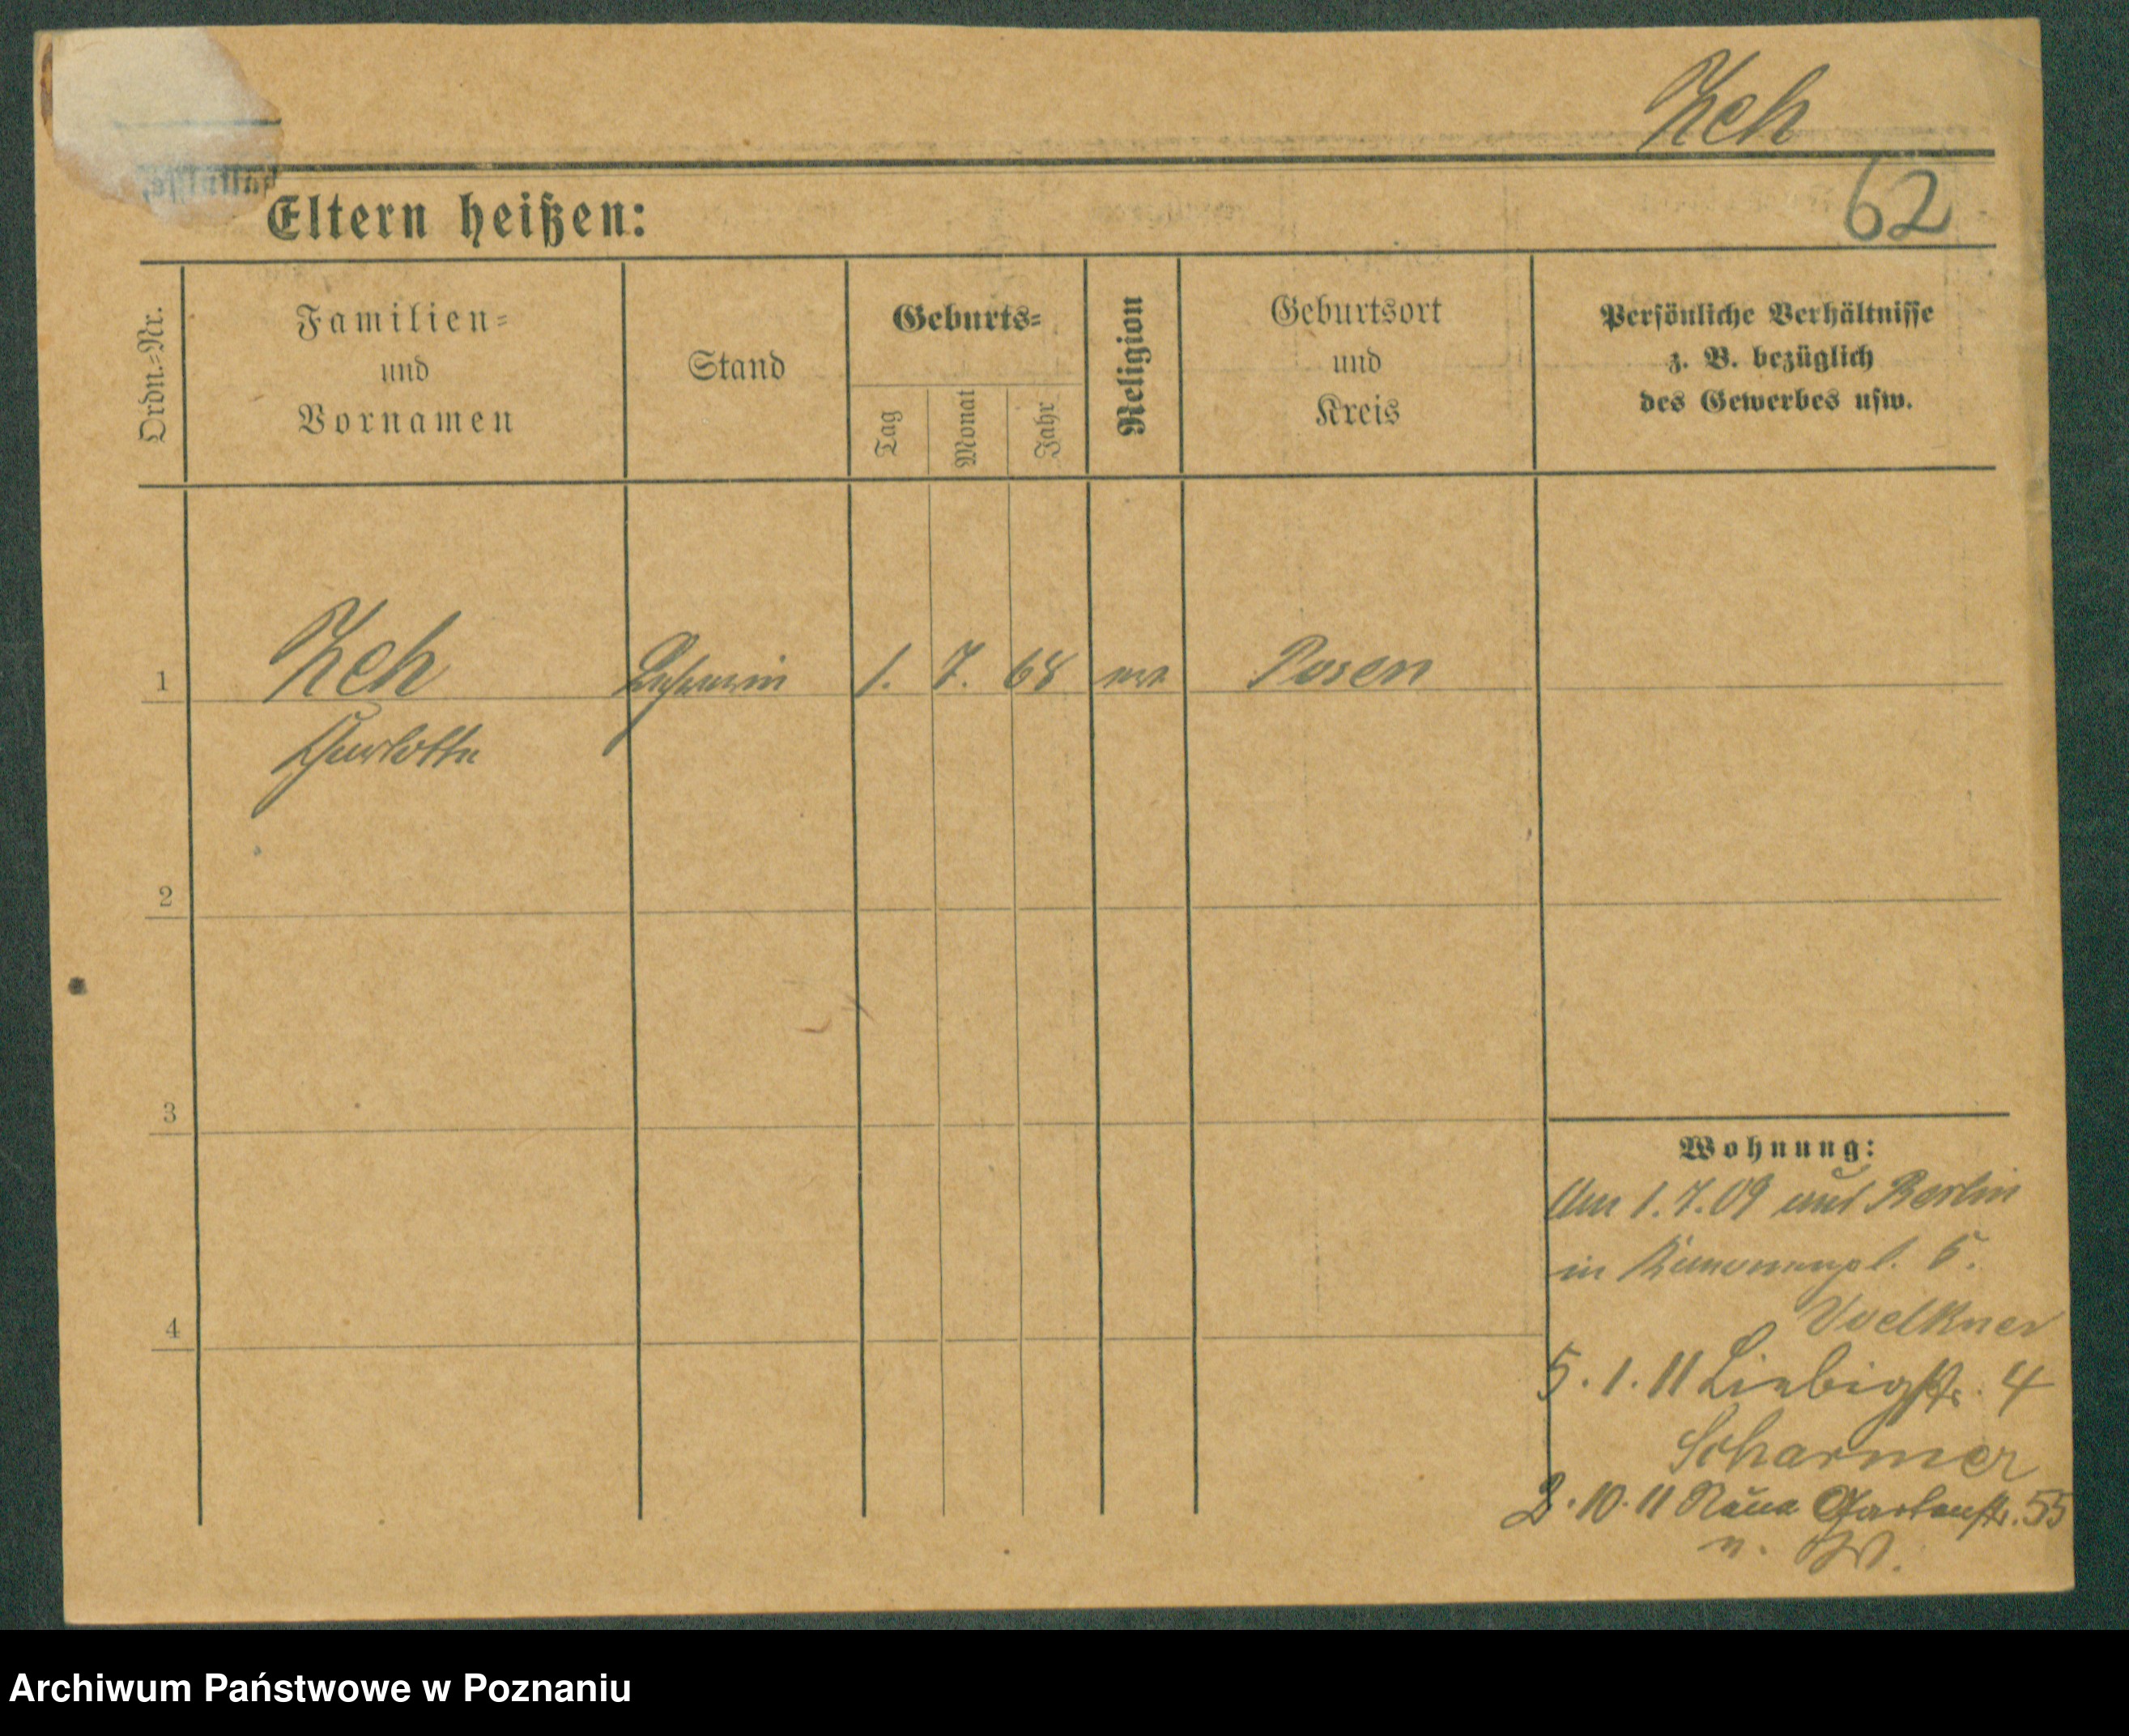 Zeh
62
Eltern heißen:
Ordn.=Nr.
Familien=
und
Vornamen
Stand
Geburts=
Tag
Monat
Jahr
Religion
Geburtsort
und
Kreis
Persönliche Verhältnisse
z. B. bezüglich
des Gewerbes usw.
1
Zeh
Charlotte
1. 7. 68
Posen
2
3
4
Wohnung:
Am 1.7.09 aus Berlin
in 5.
Voelkner
5.1.11 Liebigstr. 4
Scharmer
2.10.11 Neue Gartenstr. 55
n. W.
Archiwum Państwowe w Poznaniu